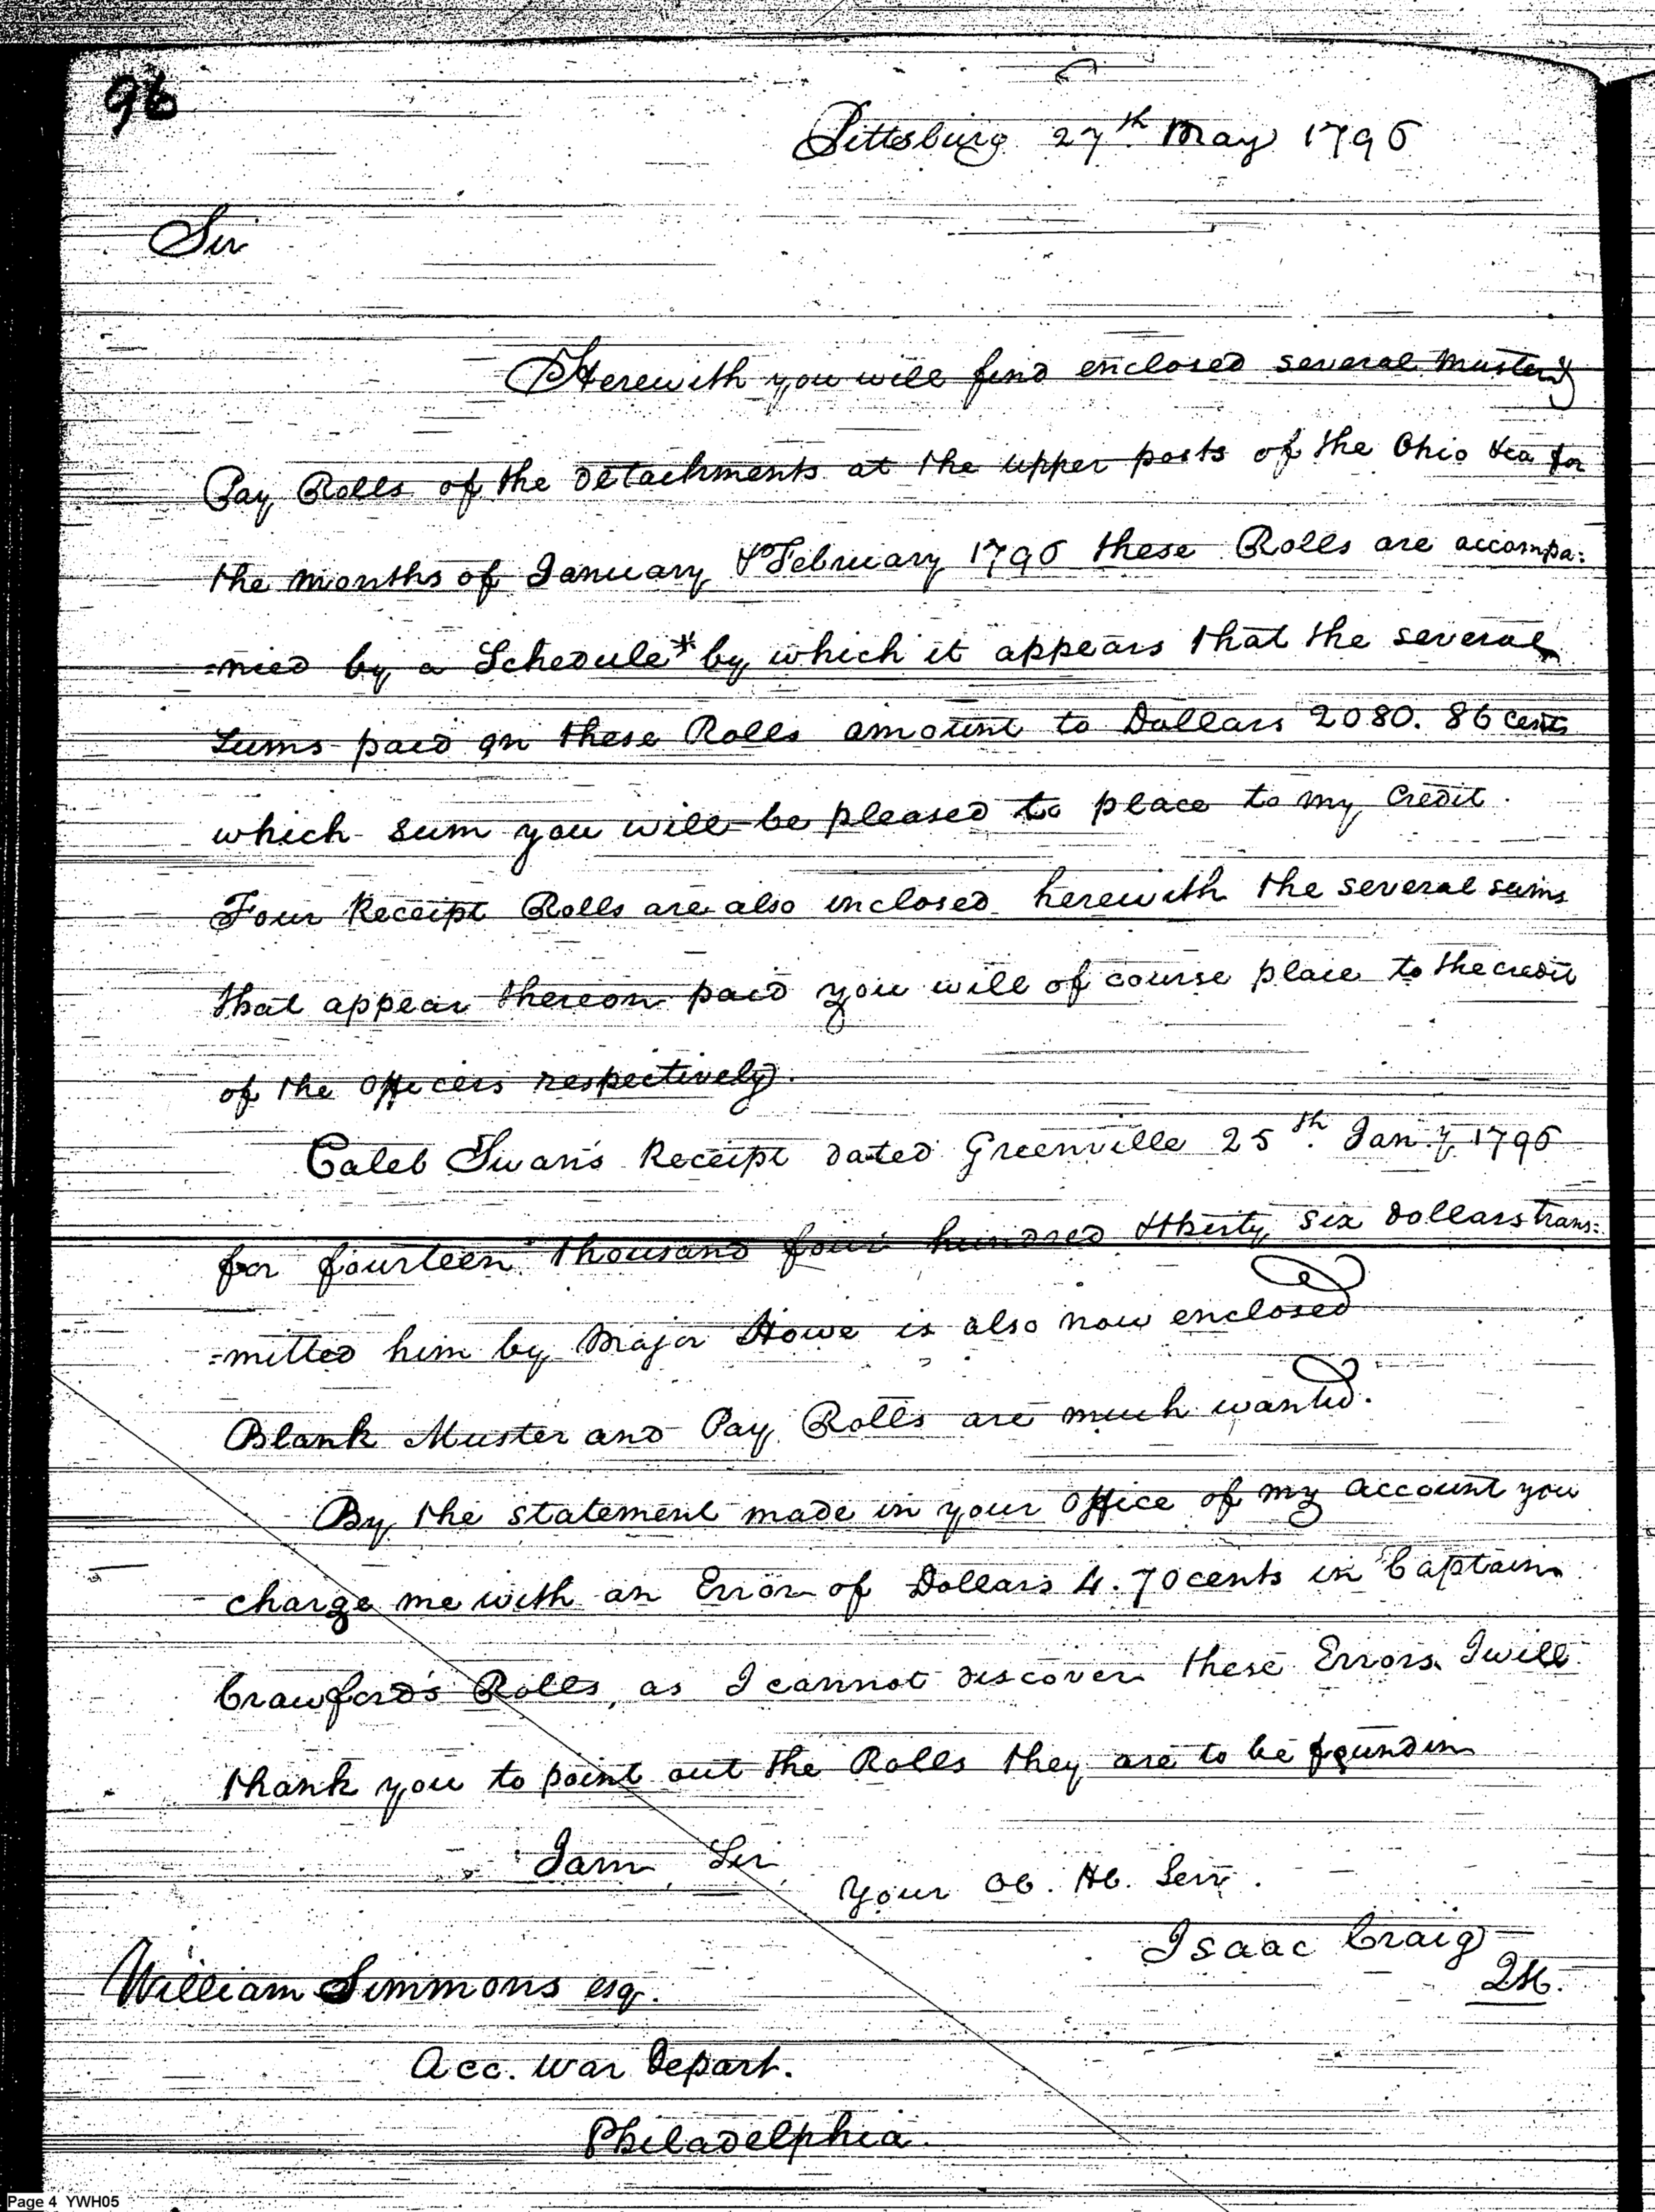 96
Pittsburg 27th May 1796
Sir
Herewith you will find enclosed several Muster &
Pay Rolls of the detachments at the upper posts of the Ohio &ca for
the months of January & February 1796 these Rolls are accompa:
=nied by a Schedule* by which it appears that the several
sums paid on these Rolls amount to Dollars 2080. 86 Cents
which sum you will be pleased to place to my Credit.
Four Receipt Rolls are also inclosed herewith the several sums
that appear thereon paid you will of course place to the credit
of the Officers respectively.
Caleb Swan's Receipt dated Greenville 25th Jan.y 1796
for fourteen thousand four hundred & thirty six dollars trans=
=mitted him by Major Howe is also now enclosed
Blank Muster and Pay Rolls are much wanted.
By the statement made in your office of my account you
charge me with an Error of Dollars 4.70 cents in Captain
Crawford's Rolls, as I cannot discover these Errors I will
thank you to point out the Rolls they are to be found in
I am, Sir
Your Ob. Hb. Serv.
Isaac Craig
QM.
William Simmons esqr.
Acc. War Depart.
Philadelphia.
Page 4 YWH05